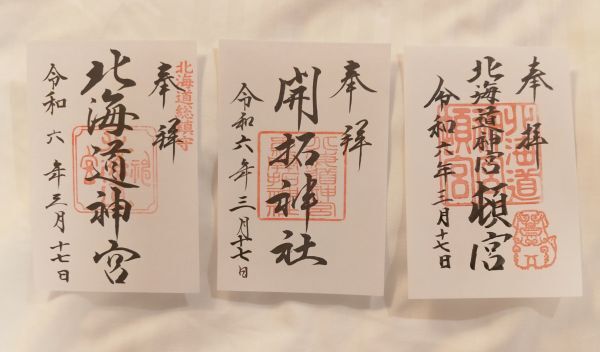 奉拝
北海道総鎮守
北海道神宮
令和六年三月十七日
奉拝
開拓神社
令和六年三月十七日
奉拝
北海道神宮頓宮
令和六年三月十七日
北海道
頓宮